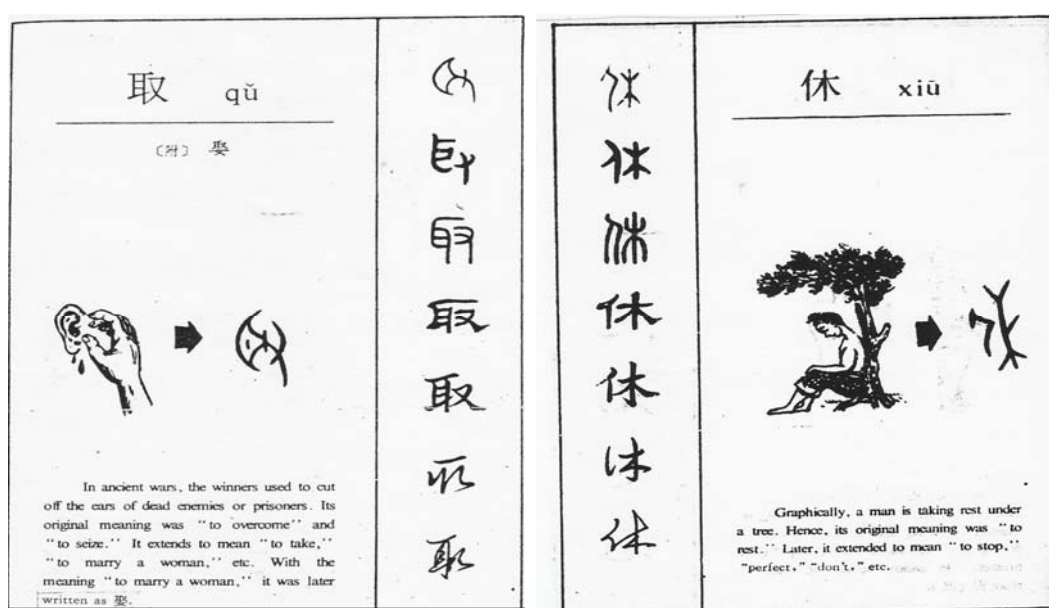 取 qǔ
〔附〕 娶
In ancient wars, the winners used to cut
off the ears of dead enemies or prisoners. Its
original meaning was “to overcome” and
“to seize.” It extends to mean “to take,”
“to marry a woman,” etc. With the
meaning “to marry a woman,” it was later
written as 娶.
取
取
取
取
取
取
取
休
休
休
休
休
休
休
休 xiū
Graphically, a man is taking rest under
a tree. Hence, its original meaning was “to
rest.” Later, it extended to mean “to stop,”
“perfect,” “don't,” etc.